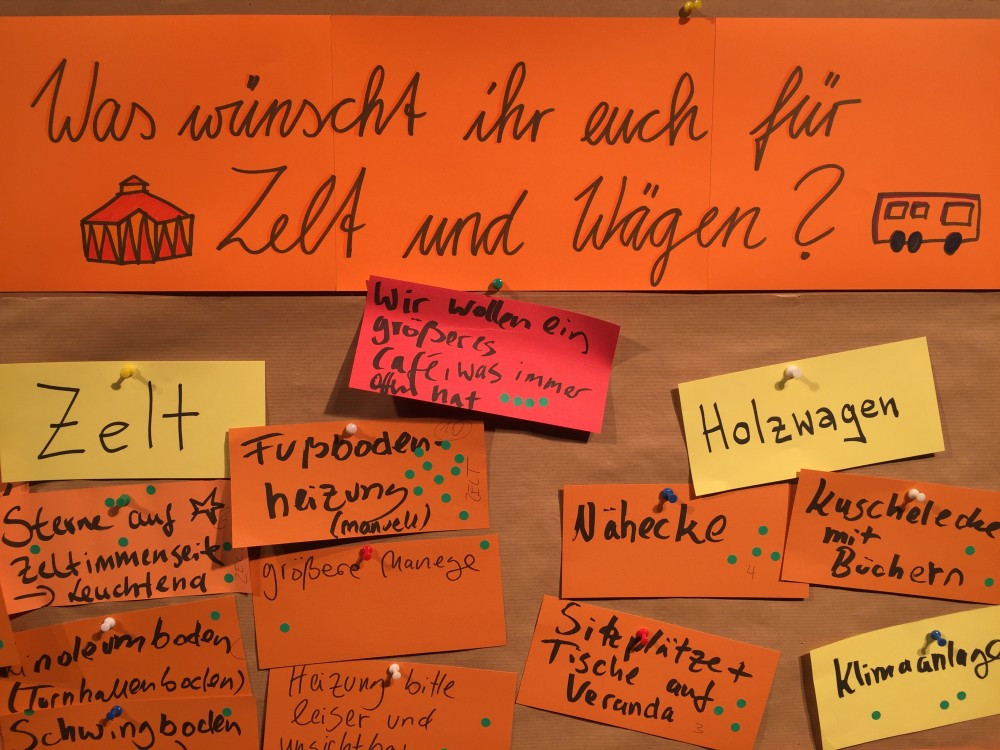 Was wünscht ihr euch für
Zelt und Wägen?
Wir wollen ein
größeres
Café, was immer
offen hat
Zelt
Holzwagen
Fußboden-
heizung
(manuell)
ZELT
Sterne auf
Zeltinnenseite
→ Leuchtend
größere Manege
Nähecke
4
Kuschelecke
mit
Büchern
Linoleumboden
(Turnhallenboden)
Schwingboden
Heizung bitte
leiser und
Sitzplätze +
Tische auf
Veranda
3
Klimaanlage